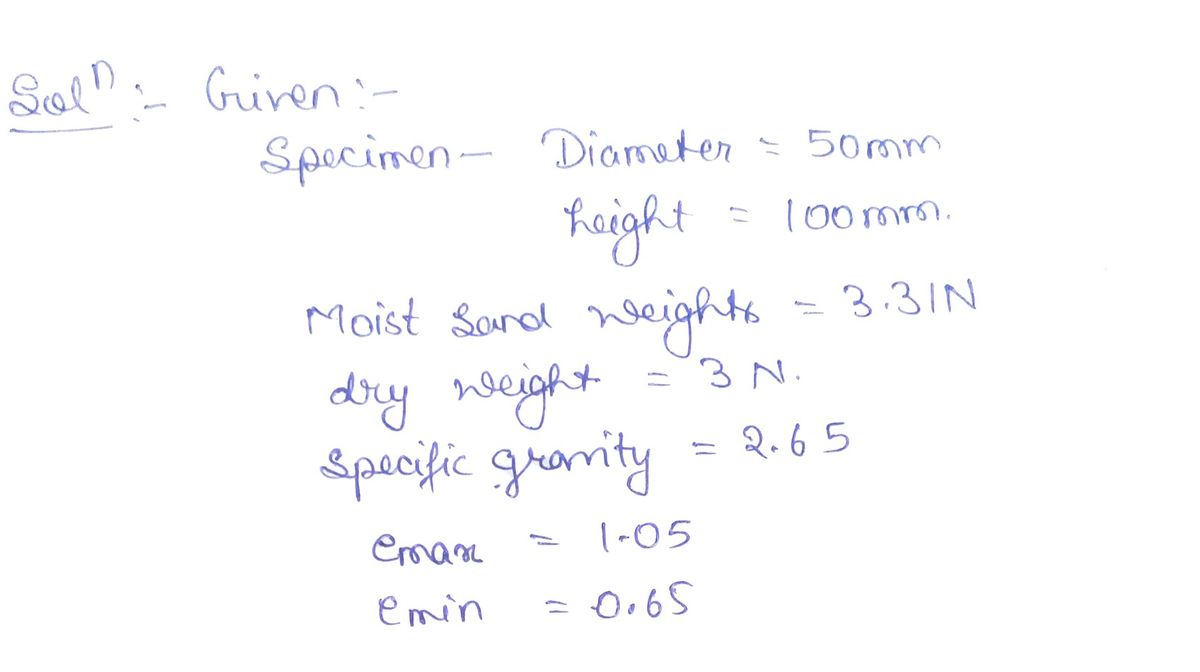 Solⁿ :- Given :-
Specimen - Diameter = 50mm
height = 100mm.
Moist Sand weights = 3.31N
dry weight = 3 N.
specific gravity = 2.65
emax = 1.05
emin = 0.65